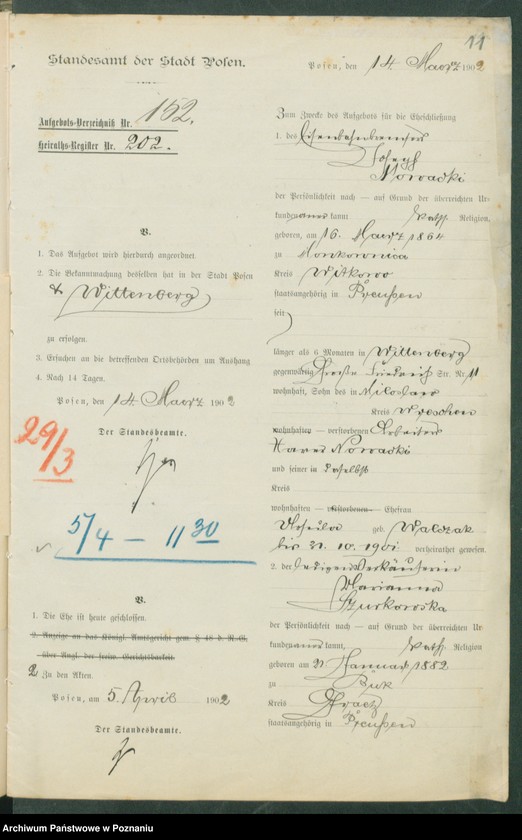 11
Standesamt der Stadt Posen.
Aufgebots-Verzeichniß Nr. 152.
Heiraths-Register Nr. 202.
V.
1. Das Aufgebot wird hierdurch angeordnet.
2. Die Bekanntmachung desselben hat in der Stadt Posen
& Wittenberg
zu erfolgen.
3. Ersuchen an die betreffenden Ortsbehörden um Aushang
4. Nach 14 Tagen.
Posen, den 14 Maerz 1902
Der Standesbeamte.
29/3
5/4 — 11 30
V.
1. Die Ehe ist heute geschlossen.
2. Anzeige an das Königl. Amtsgericht gem. § 48 d. R.G.
über Angl. der freiw. Gerichtsbarkeit
2 Zu den Akten.
Posen, am 5. April 1902
Der Standesbeamte.
Posen, den 14. Maerz 1902
Zum Zwecke des Aufgebots für die Eheschließung
1. des Eisenbahnbremsers
Joseph
Nowacki
der Persönlichkeit nach — auf Grund der überreichten Ur-
kunden anerkannt kath. Religion,
geboren, am 16. Maerz 1864
zu
Kreis Witkowo
staatsangehörig in Preußen
seit
länger als 6 Monaten in Wittenberg
gegenwärtig Große Friedrich Str. Nr. 11
wohnhaft, Sohn des in Miloslaw
Kreis Wreschen
wohnhaften — verstorbenen Arbeiters
Nowacki
und seiner in daselbst
Kreis
wohnhaften — verstorbenen Ehefrau
Ursula geb. Walczak
bis 31. 10. 1901 verheirathet gewesen.
2. der Verkäuferin
Marianna
Szurkowska
der Persönlichkeit nach — auf Grund der überreichten Ur-
kunden anerkannt, kath. Religion
geboren am 21 Januar 1882
zu Buk
Kreis Graetz
staatsangehörig in Preußen
Archiwum Państwowe w Poznaniu